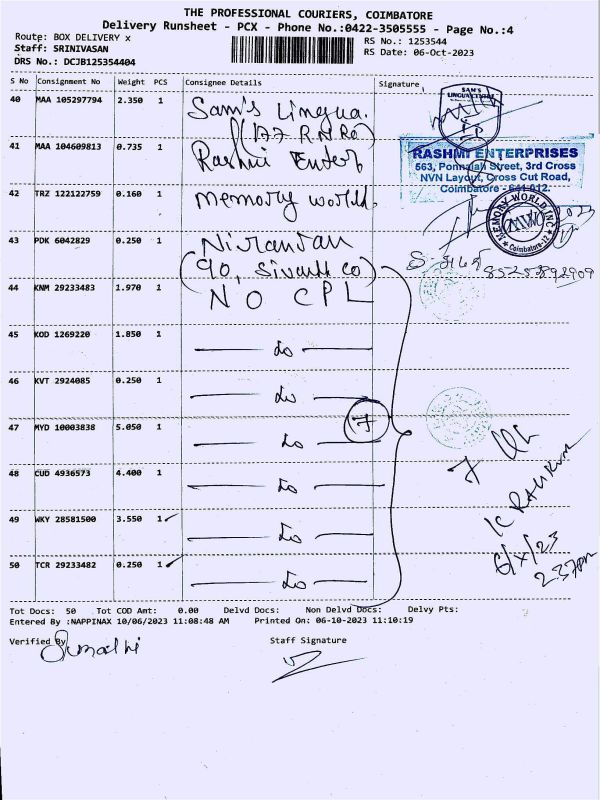 THE PROFESSIONAL COURIERS, COIMBATORE
Delivery Runsheet - PCX - Phone No.:0422-3505555 - Page No.:4
Route: BOX DELIVERY x
Staff: SRINIVASAN
DRS No.: DCJB125354404
RS No.: 1253544
RS Date: 06-Oct-2023
S No Consignment No Weight PCS Consignee Details Signature
40 MAA 105297794 2.350 1 Sam's Lingua.
SAM'S
41 MAA 104609813 0.735 1 Rashmi Enter
RASHMI ENTERPRISES
563, Ponnaiah Street, 3rd Cross
NVN Layout, Cross Cut Road,
Coimbatore - 641 012.
42 TRZ 122122759 0.160 1 memory world.
MEMORY WORLD INC
Coimbatore-12
43 PDK 6042829 0.250 1 Niranjan
(90,
44 KNM 29233483 1.970 1 NO CPL
45 KOD 1269220 1.850 1 do
46 KVT 2924085 0.250 1 do
47 MYD 10003838 5.050 1 do
7
48 CUD 4936573 4.400 1 do
49 WKY 28581500 3.550 1 do
50 TCR 29233482 0.250 1 do
6/X/23
2.37pm
Tot Docs: 50 Tot COD Amt: 0.00 Delvd Docs: Non Delvd Docs: Delvy Pts:
Entered By :NAPPINAX 10/06/2023 11:08:48 AM Printed On: 06-10-2023 11:10:19
Verified By
Staff Signature